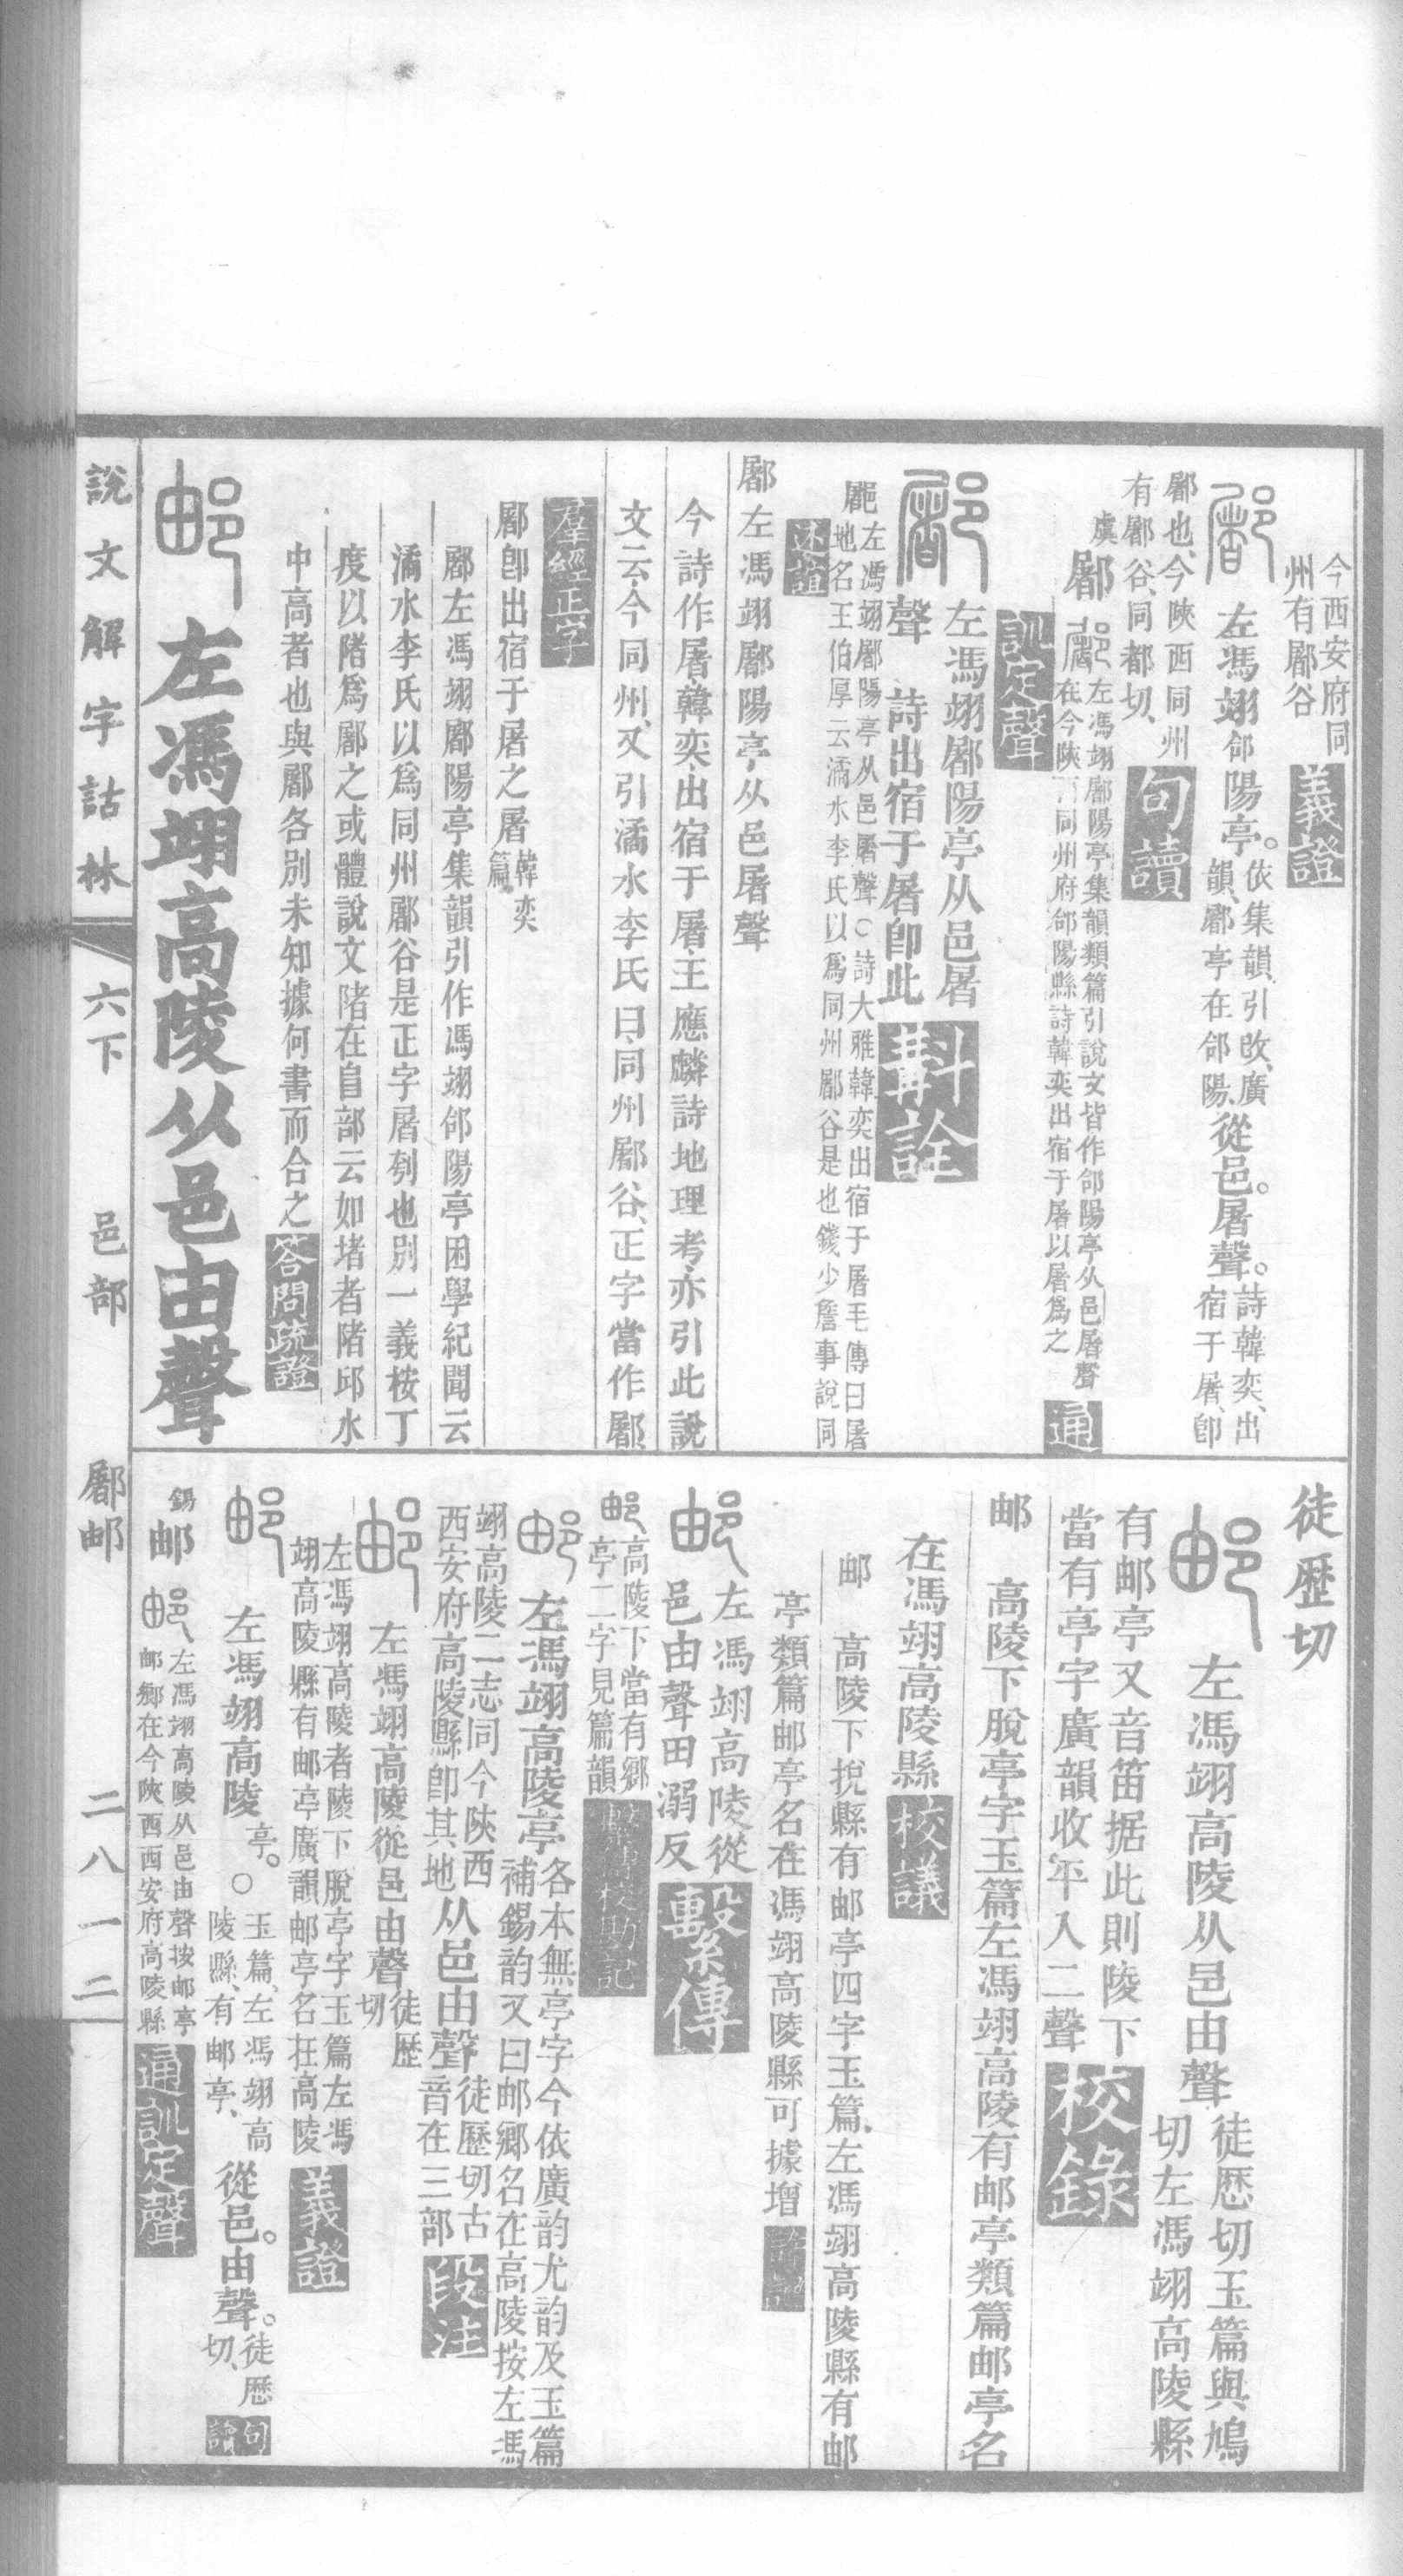 今西安府同
州有䣝谷
義證
左馮翊郃陽亭。依集韻引改、廣
韻、䣝亭在郃陽、從邑。屠聲。詩韓奕、出
宿于屠、卽
䣝也、今陝西同州
有䣝谷、同都切、
句讀
虞䣝
左馮翊䣝陽亭集韻類篇引說文皆作郃陽亭从邑屠聲
在今陝西同州府郃陽縣詩韓奕出宿于屠以屠爲之
通
訓定聲
左馮翊䣝陽亭从邑屠
聲 詩出宿于屠卽此
斠詮
左馮翊䣝陽亭从邑屠聲○詩大雅韓奕出宿于屠毛傳曰屠
地名王伯厚云潏水李氏以爲同州䣝谷是也錢少詹事說同
述誼
䣝左馮翊䣝陽亭从邑屠聲
今詩作屠韓奕出宿于屠王應麟詩地理考亦引此說
文云今同州又引潏水李氏曰同州䣝谷、正字當作䣝
羣經正字
䣝卽出宿于屠之屠韓奕
篇
䣝左馮翊䣝陽亭集韻引作馮翊郃陽亭困學紀聞云
潏水李氏以爲同州䣝谷是正字屠刎也別一義桉丁
度以陼爲䣝之或體說文陼在𨸏部云如堵者陼邱水
中高者也與䣝各別未知據何書而合之
答問疏證
左馮翊高陵从邑由聲
徒歷切
左馮翊高陵从邑由聲徒歷切玉篇與鳩
切左馮翊高陵縣
有邮亭又音笛据此則陵下
當有亭字廣韻收平入二聲
校錄
邮 高陵下脫亭字玉篇左馮翊高陵有邮亭類篇邮亭名
在馮翊高陵縣
校議
邮 高陵下捝縣有邮亭四字玉篇、左馮翊高陵縣有邮
亭類篇邮亭名在馮翊高陵縣可據增
左馮翊高陵從
邑由聲田溺反
繫傳
高陵下當有鄉
亭二字見篇韻
繫傳校勘記
左馮翊高陵亭各本無亭字今依廣韵尤韵及玉篇
補錫韵又曰邮鄉名在高陵按左馮
翊高陵二志同今陝西
西安府高陵縣卽其地从邑由聲徒歷切古
音在三部
段注
左馮翊高陵從邑由聲徒歷
切
左馮翊高陵者陵下脫亭字玉篇左馮
翊高陵縣有邮亭廣韻邮亭名在高陵
義證
左馮翊高陵亭。○玉篇、左馮翊高
陵縣、有邮亭、從邑。由聲。徒歷
切、
句讀
錫邮
左馮翊高陵从邑由聲按邮亭
邮鄉在今陝西西安府高陵縣
通訓定聲
說文解字詁林 六下 邑部 䣝邮 二八一二